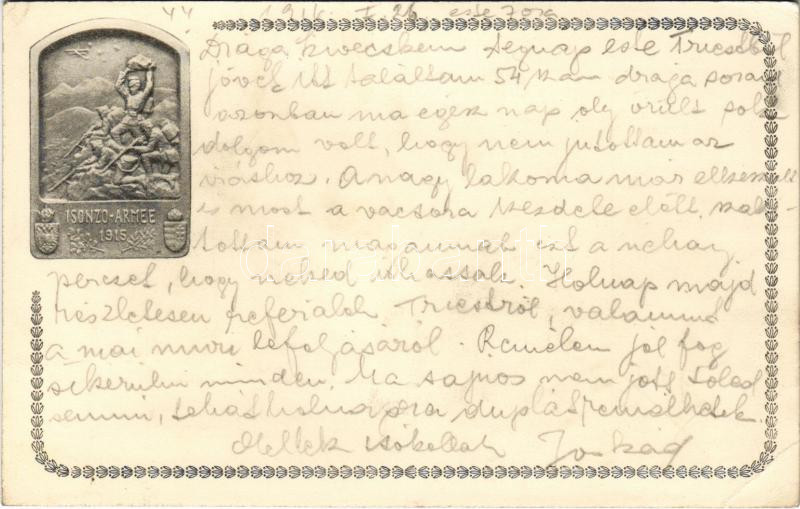 44 1916. I 26 este 7 óra
Drága kivecskem tegnap este Triestből
jövet itt találtam 54 drága sorai
azonban ma egész nap oly őrült sok
dolgom volt, hogy nem jutottam az
íráshoz. A nagy lakoma már elkez
ISONZO-ARMEE
1915
és most a vacsora kezdete előtt,
tottam magamnak ezt a nehány
percet, hogy neked írhassak. Holnap majd
részletesen referálok Triestről, valamint
a mai muri lefolyásáról. Remélem jól fog
sikerülni minden. Ma sajnos nem jött tőled
semmi, tehát holnapra duplát remélhetek.
ölellek csókollak
darabanth